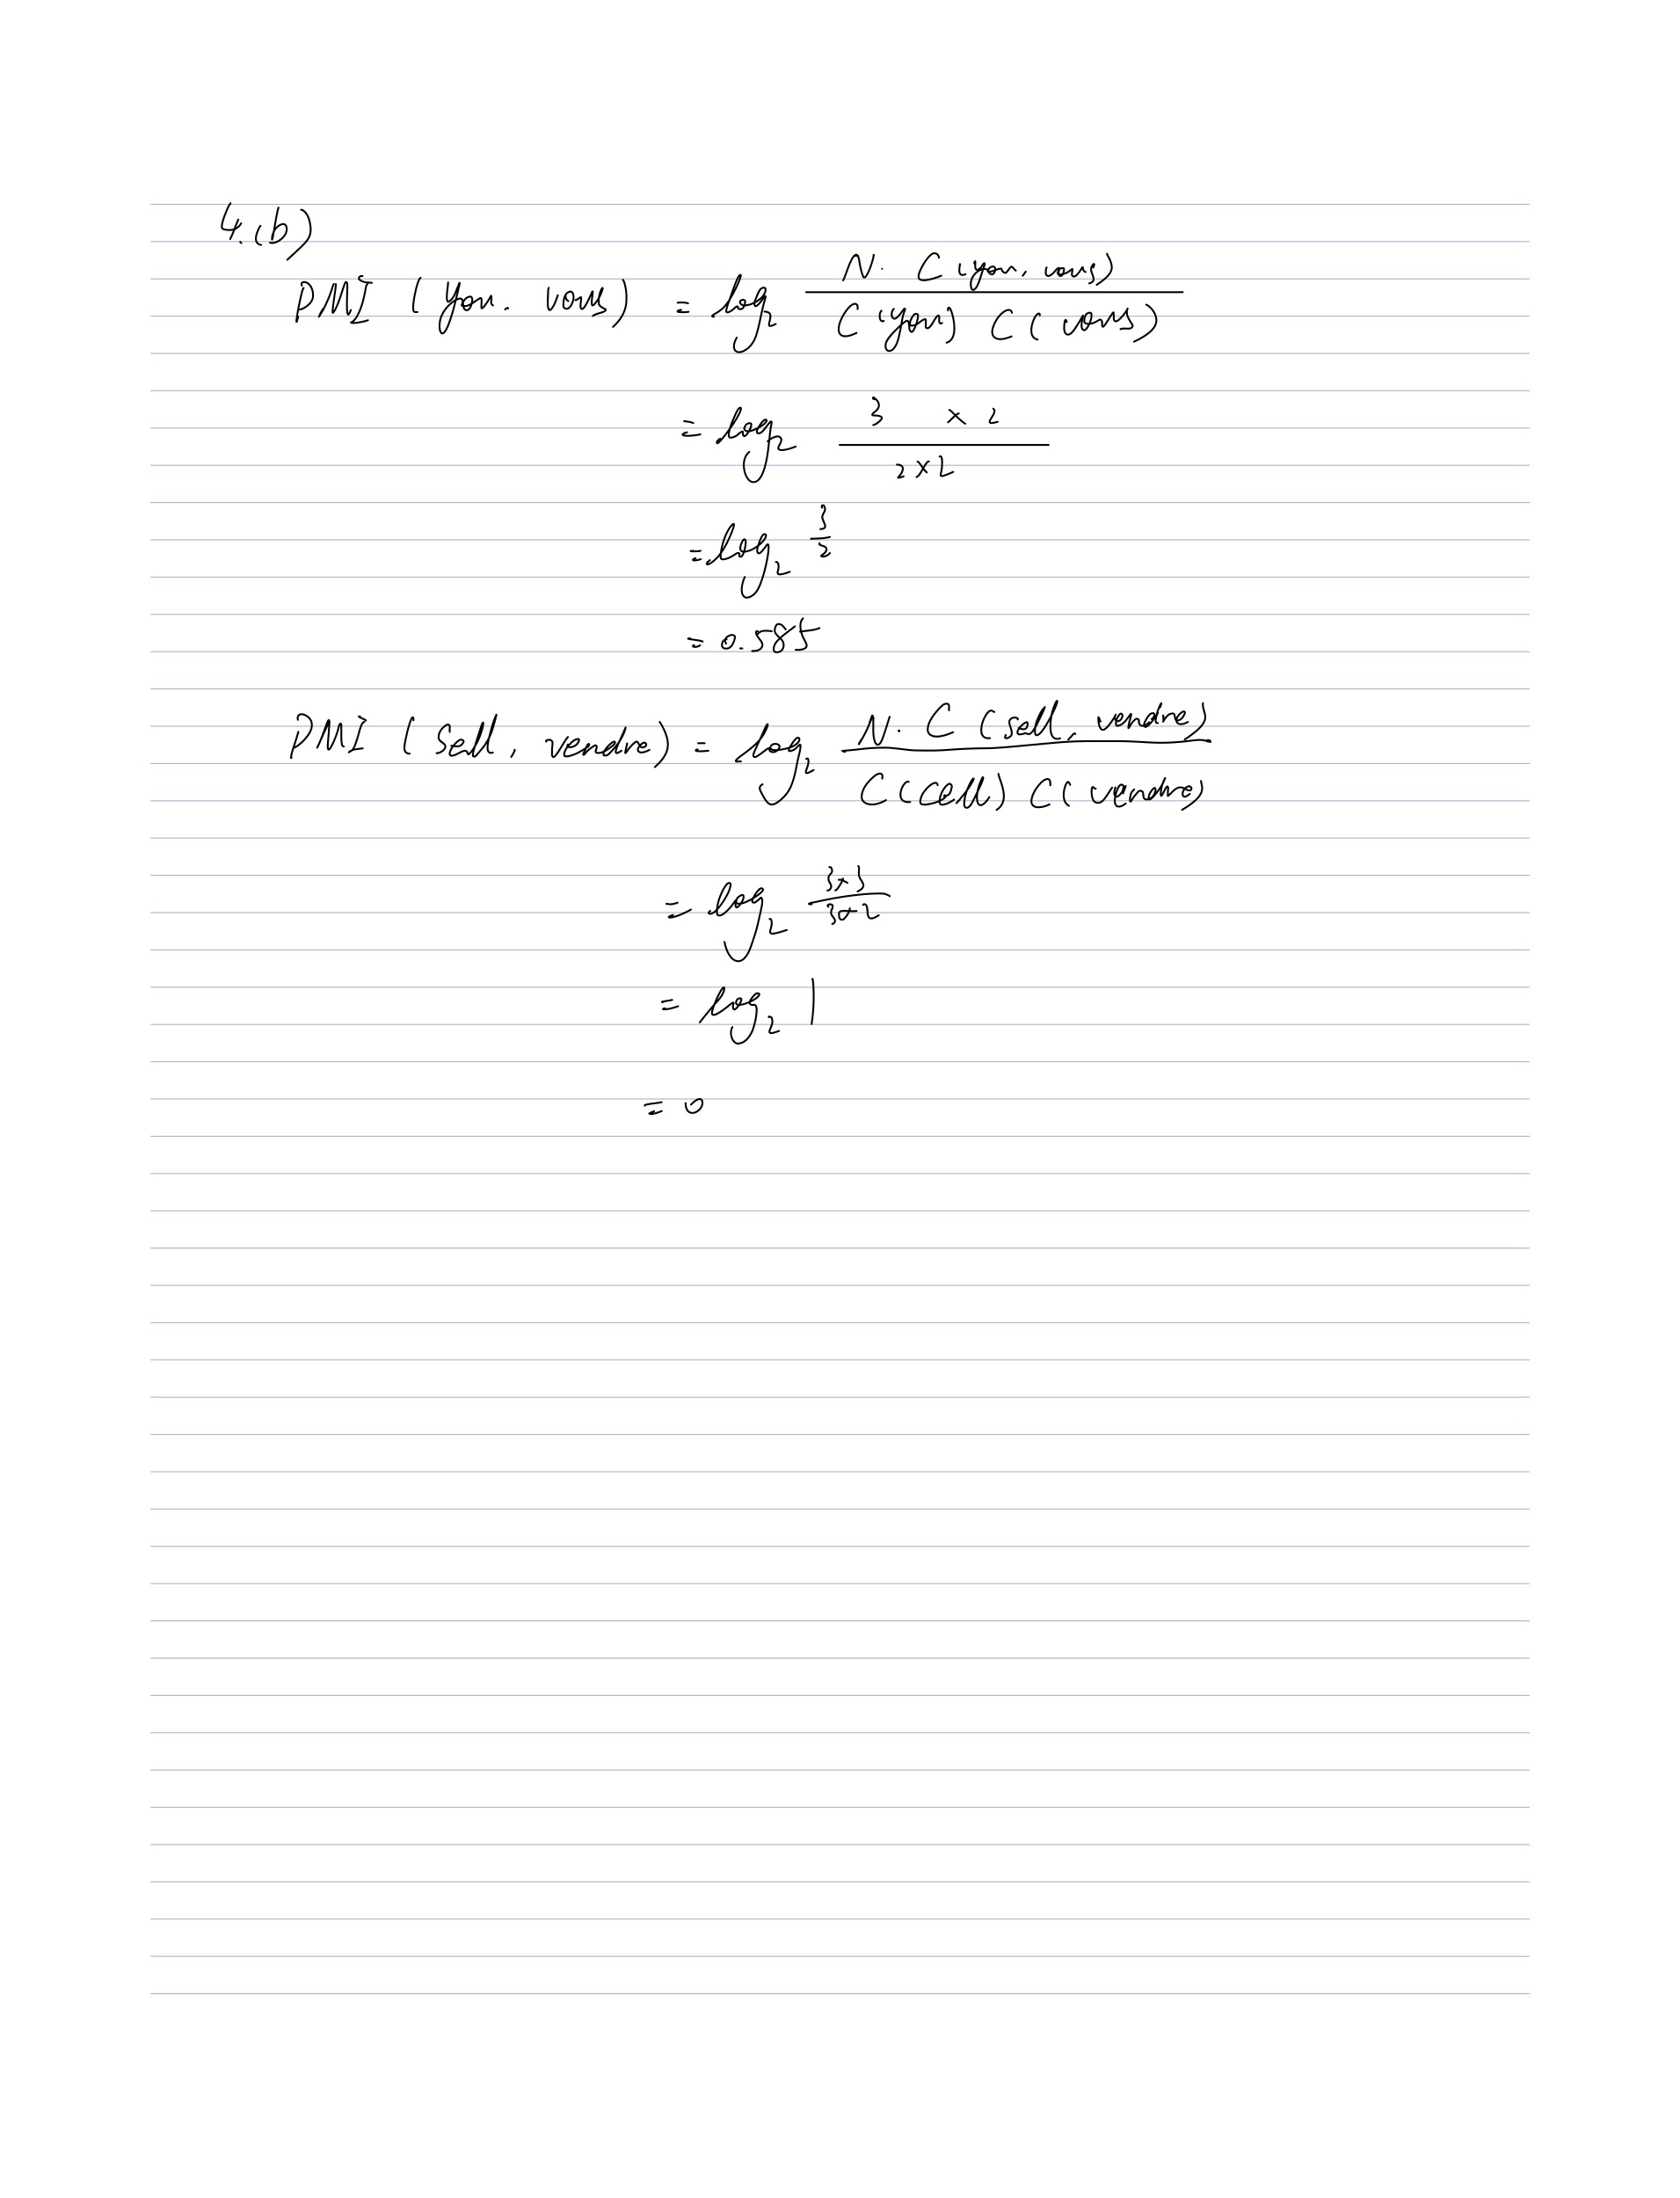 4.(b)
PMI (you, vous) = log₂ N. C(you, vous) / C(you) C(vous)
= log₂ 3 × 2 / 2×2
= log₂ 3/2
= 0.585
PMI (Sell, vendre) = log₂ N. C(sell, vendre) / C(cell) C(vendre)
= log₂ 3×3 / 3×2
= log₂ 1
= 0